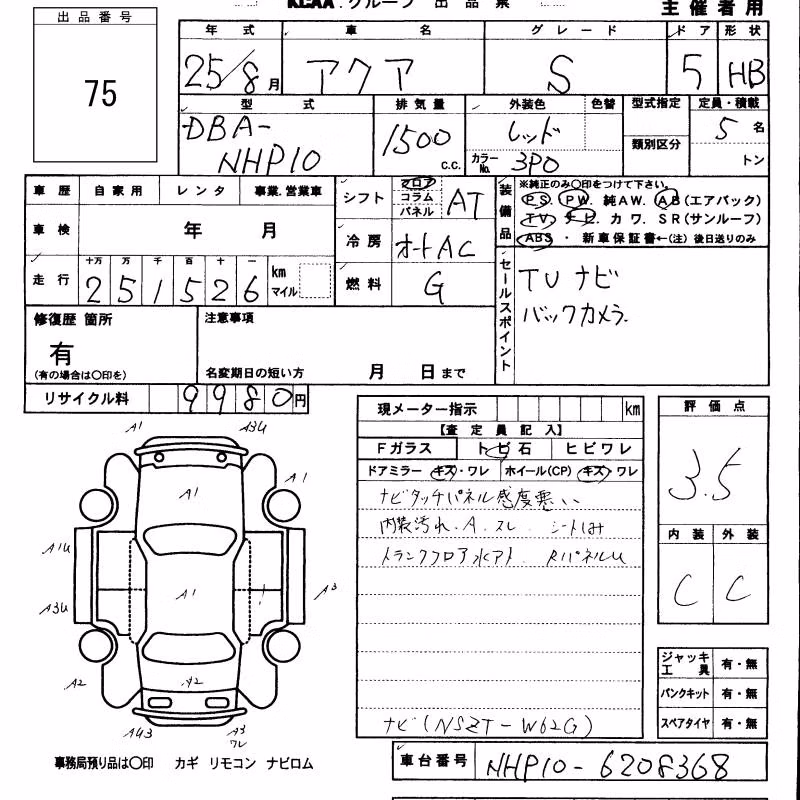 KCAA.グループ 出品票
主催者用
出品番号
75
年式 車名 グレード ドア 形状
25/8月 アクア S 5 HB
型式 排気量 外装色 色替 型式指定 定員・積載
DBA-
NHP10
1500 c.c.
レッド
カラーNo. 3P0
類別区分
5名
トン
車歴 自家用 レンタ 事業.営業車
車検 年 月
走行 十万 万 千 百 十 一
251526 km マイル
シフト フロア コラム パネル AT
冷房 オートAC
燃料 G
装備品 ※純正のみ〇印をつけて下さい。
P S. P W. 純A W. A B(エアバック)
T V. ナ ビ. カ ワ. S R(サンルーフ)
A B S ・ 新車保証書←(注)後日送りのみ
セールスポイント
TV ナビ
バックカメラ.
修復歴 箇所
有
(有の場合は〇印を)
注意事項
名変期日の短い方 月 日まで
リサイクル料 9980円
現メーター指示 km
【査定員記入】
Fガラス トビ石 ヒビワレ
ドアミラー キズ・ワレ ホイール(CP) キズ・ワレ
ナビタッチパネル感度悪い
内装汚れ.A.スレ シート
トランクフロア水アト. RパネルU
ナビ(NSZT-W62G)
評価点
3.5
内装 外装
C C
ジャッキ工具 有・無
パンクキット 有・無
スペアタイヤ 有・無
A1 A3U
A1 A1
A1U
A3U A1 A3
A2 A2
A43 A3
ワレ
事務局預り品は〇印 カギ リモコン ナビロム
車台番号 NHP10-6208368